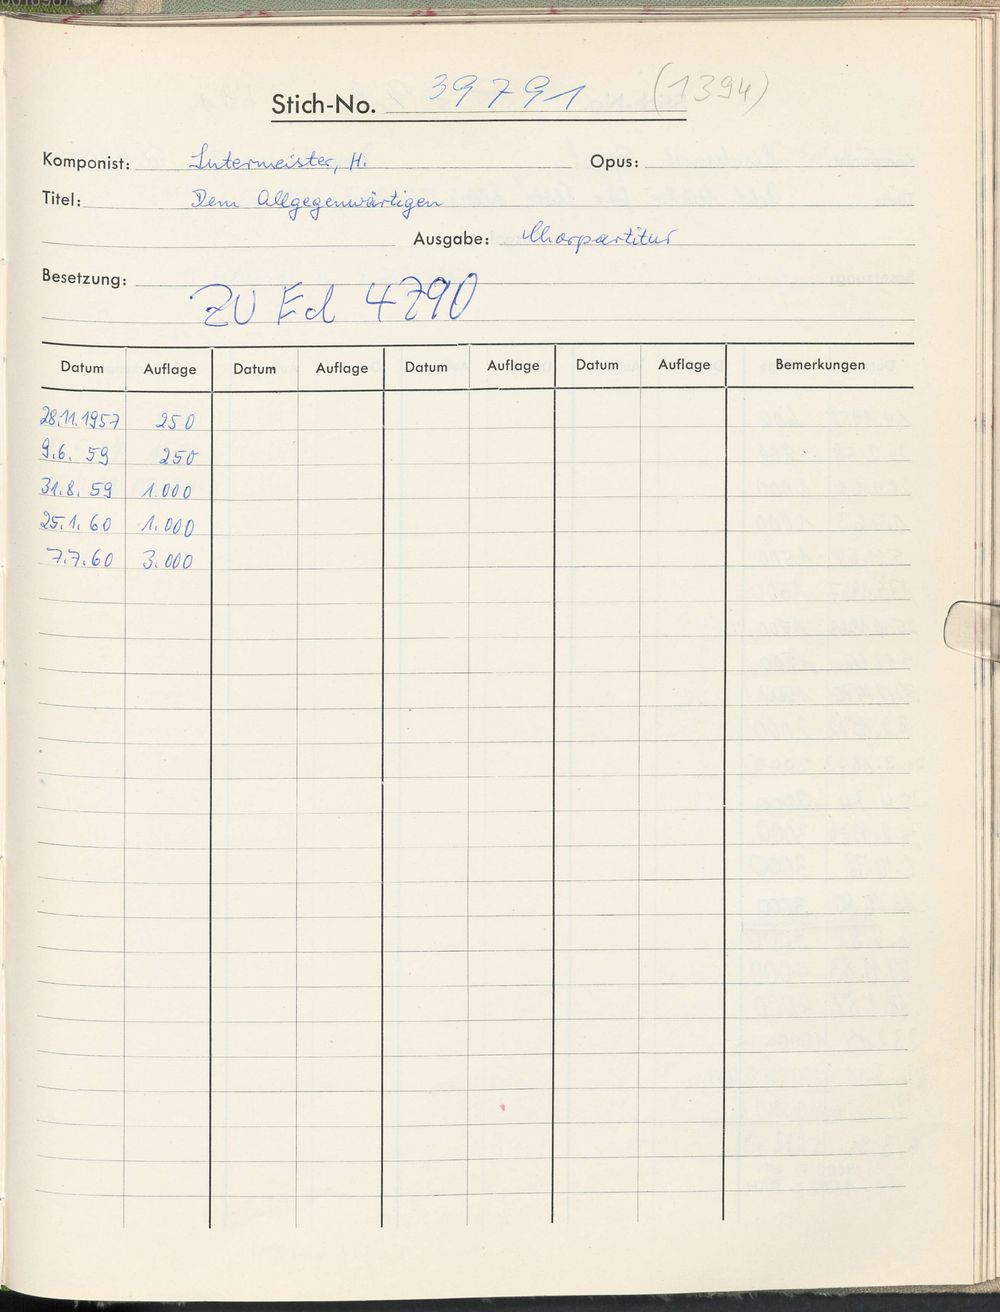 Stich-No. 39791 (1394)
Komponist: Sutermeister, H. Opus:
Titel: Dem Allgegenwärtigen
Ausgabe: Chorpartitur
Besetzung:
ZU Ed 4790
Datum Auflage Datum Auflage Datum Auflage Datum Auflage Bemerkungen
28.11.1957 250
9.6. 59 250
31.8. 59 1.000
25.1. 60 1.000
7.7.60 3.000